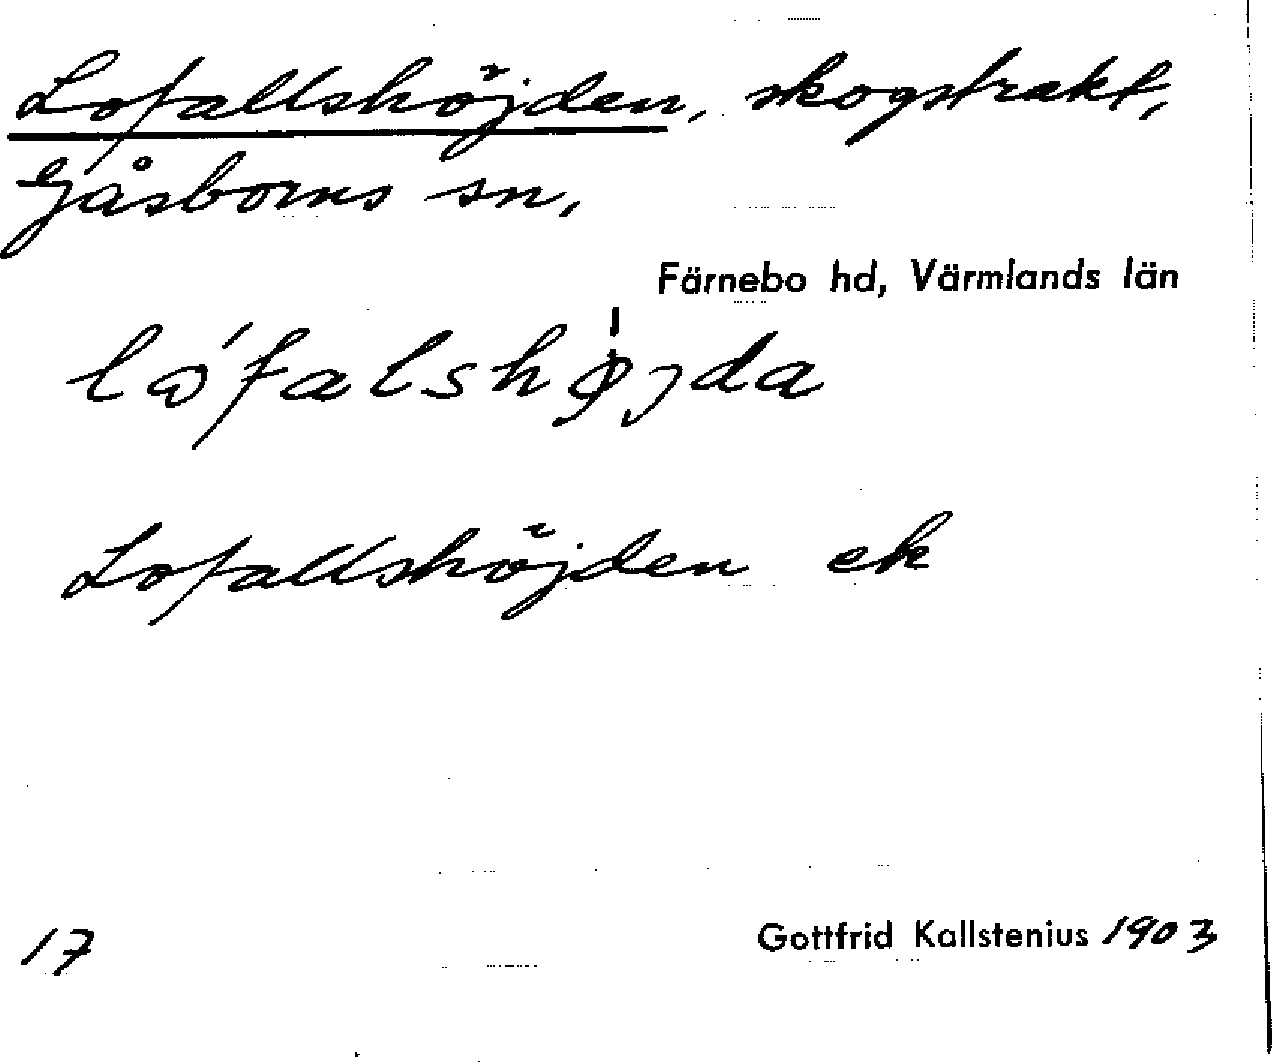 Lofallshöjden, skogstrakt,
Gåsborns sn,
Färnebo hd, Värmlands län
Lofallshöjden ek
17
Gottfrid Kallstenius 1903